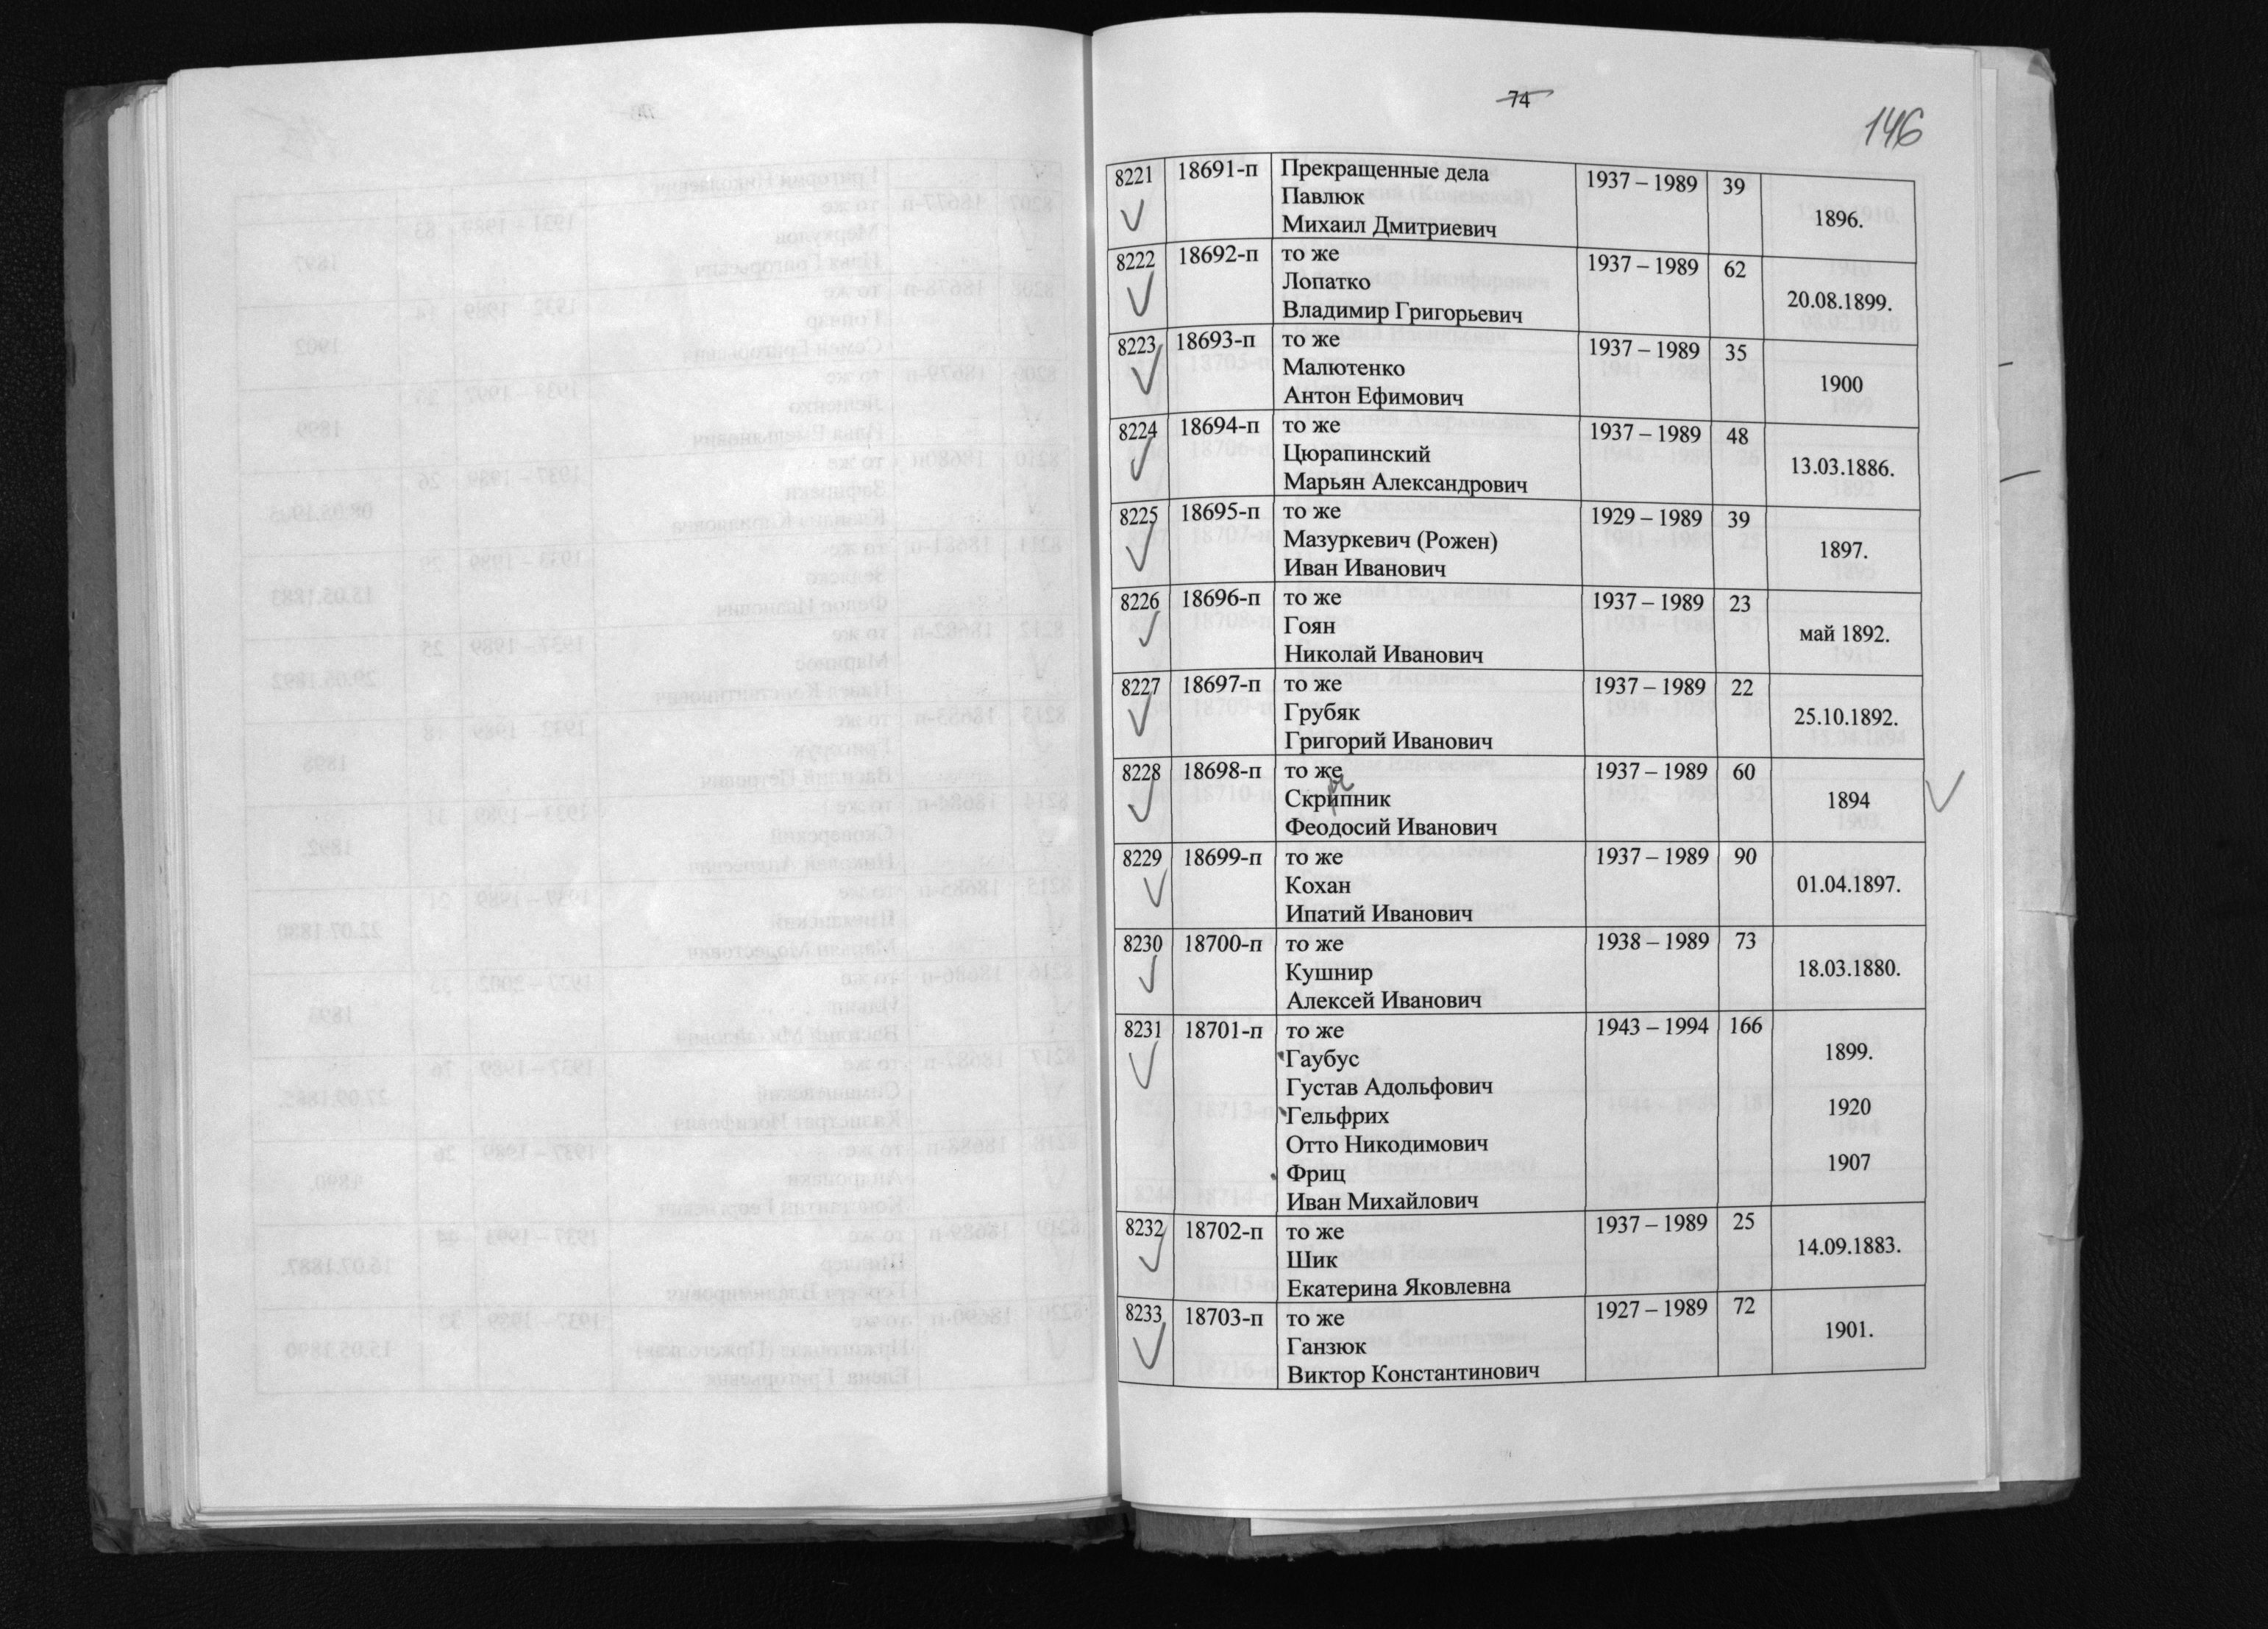 74
146
8221 18691-п Прекращенные дела 1937 – 1989 39
Павлюк 1896.
Михаил Дмитриевич
8222 18692-п то же 1937 – 1989 62
Лопатко 20.08.1899.
Владимир Григорьевич
8223 18693-п то же 1937 – 1989 35
Малютенко 1900
Антон Ефимович
8224 18694-п то же 1937 – 1989 48
Цюрапинский 13.03.1886.
Марьян Александрович
8225 18695-п то же 1929 – 1989 39
Мазуркевич (Рожен) 1897.
Иван Иванович
8226 18696-п то же 1937 – 1989 23
Гоян май 1892.
Николай Иванович
8227 18697-п то же 1937 – 1989 22
Грубяк 25.10.1892.
Григорий Иванович
8228 18698-п то же 1937 – 1989 60
Скрипник 1894
Феодосий Иванович
8229 18699-п то же 1937 – 1989 90
Кохан 01.04.1897.
Ипатий Иванович
8230 18700-п то же 1938 – 1989 73
Кушнир 18.03.1880.
Алексей Иванович
8231 18701-п то же 1943 – 1994 166
Гаубус 1899.
Густав Адольфович
Гельфрих 1920
Отто Никодимович
Фриц 1907
Иван Михайлович
8232 18702-п то же 1937 – 1989 25
Шик 14.09.1883.
Екатерина Яковлевна
8233 18703-п то же 1927 – 1989 72
Ганзюк 1901.
Виктор Константинович